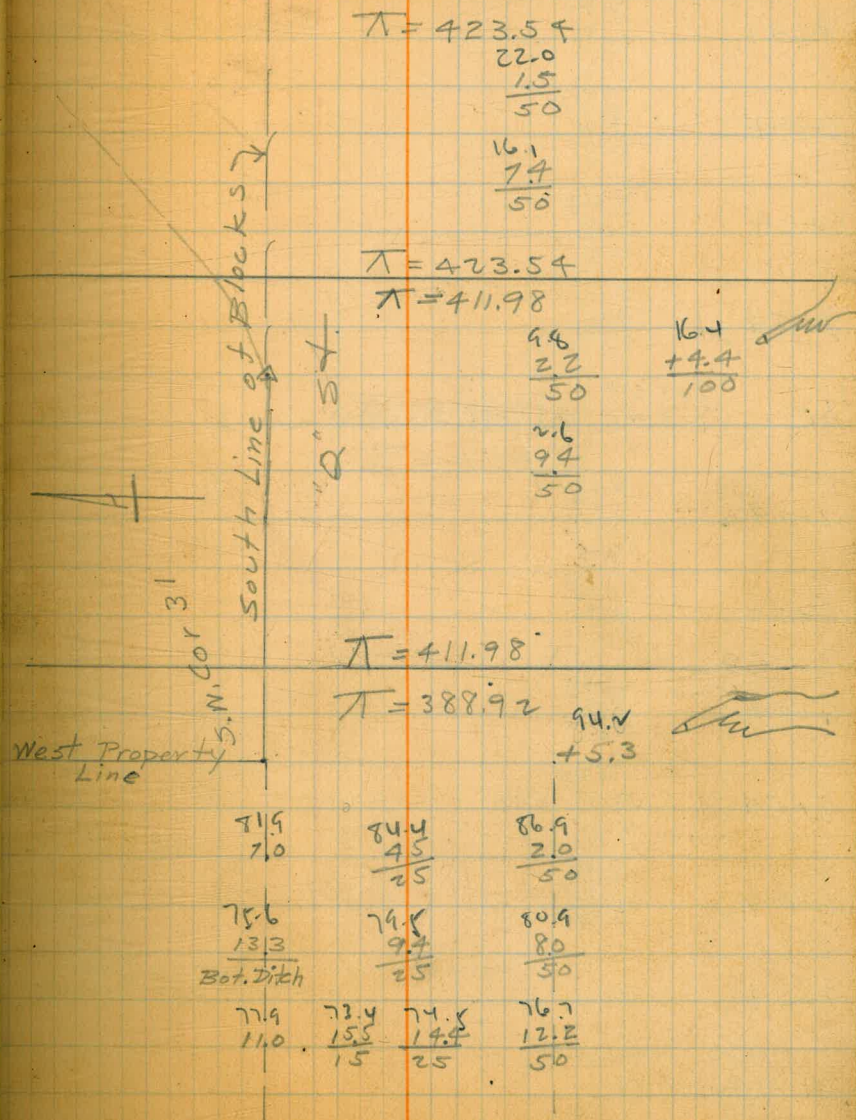 ⊼ = 423.54
22.0
1.5
50
16.1
7.4
50
South Line of Blocks
⊼ = 423.54
⊼ = 411.98
"Q" St.
9.8
2.2
50
16.4
+4.4
100
2.6
9.4
50
⊼ = 411.98
⊼ = 388.92
94.2
+5.3
West Property
Line
81.9
7.0
84.4
4.5
25
86.9
2.0
50
75.6
13.3
Bot. Ditch
79.5
9.4
25
80.9
8.0
50
77.9
11.0
73.4
15.5
15
74.5
14.4
25
76.7
12.2
50